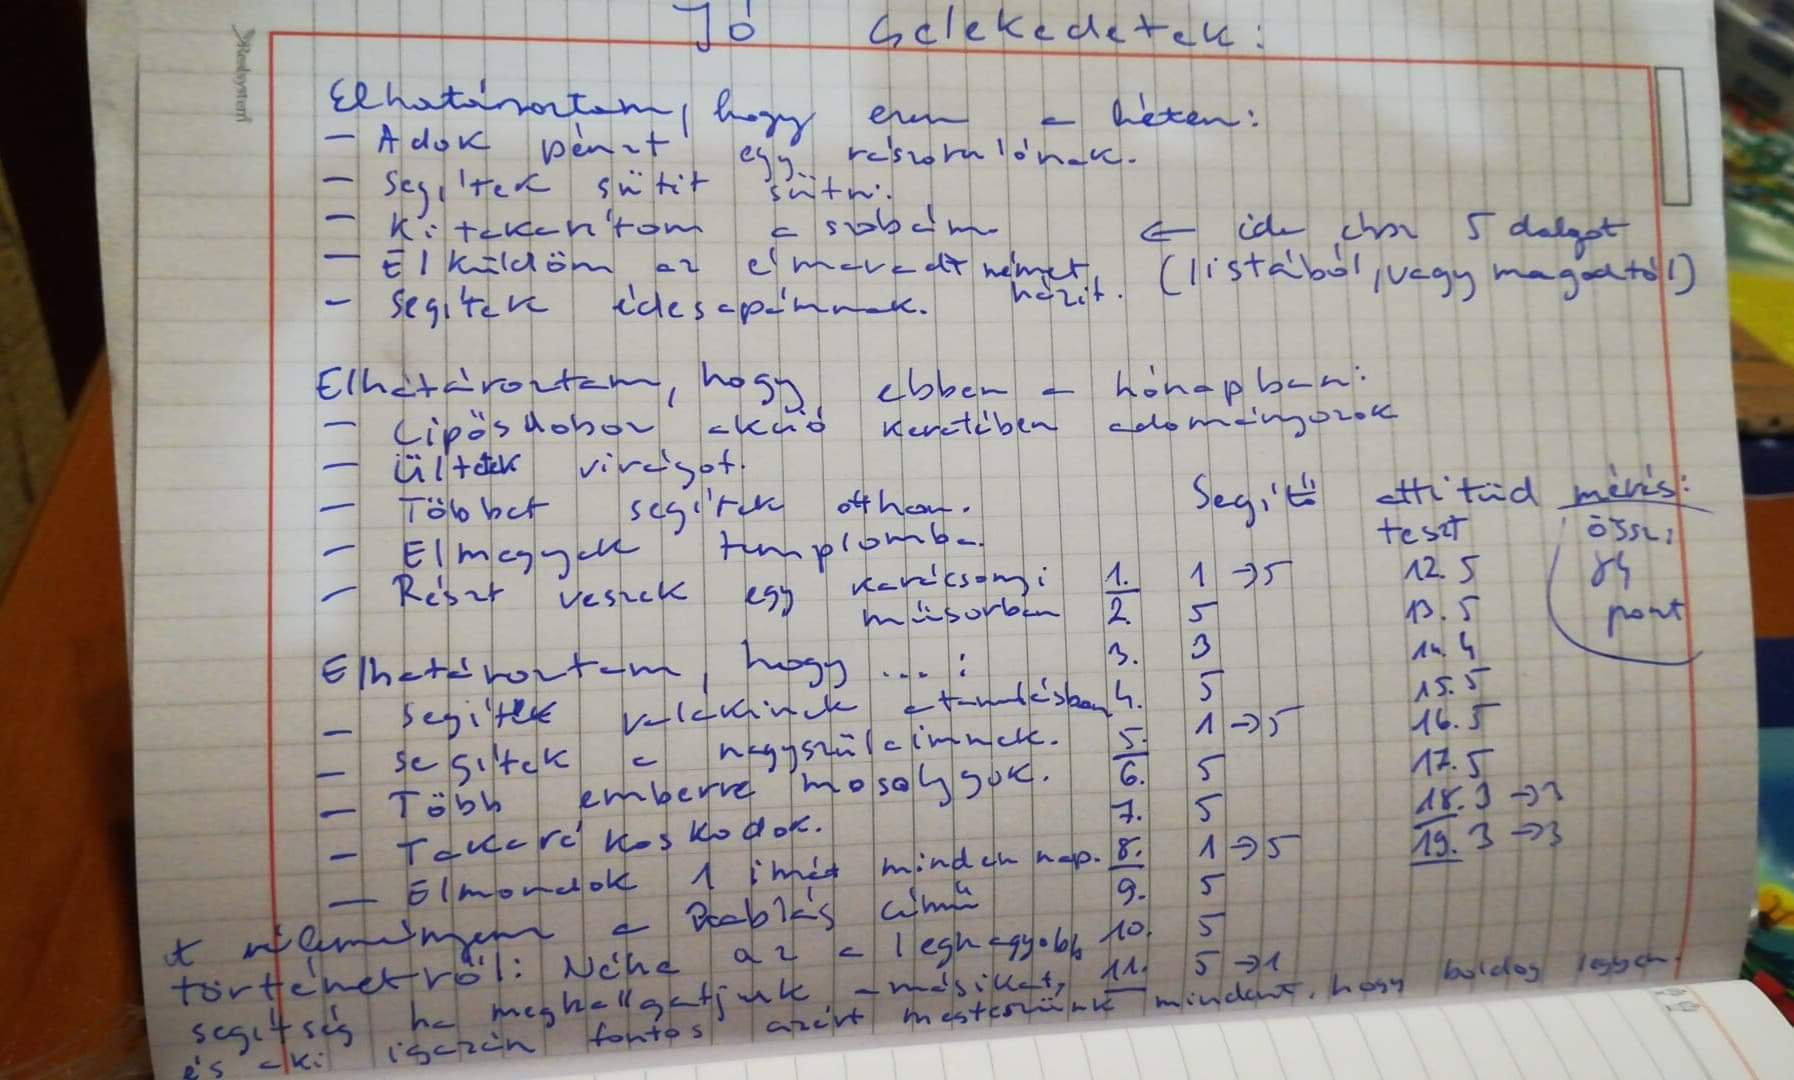 Jó cselekedetek:
Elhatároztam, hogy ezen a héten:
- Adok pénzt egy rászorulónak.
- Segítek sütit sütni.
- Kitakarítom a szobám.
- Elküldöm az elmaradt német házit.
- Segítek édesapámnak.
← ide írsz 5 dolgot
(listából, vagy magadtól)
Elhatároztam, hogy ebben a hónapban:
- Cipősdoboz akció keretében adományozok
- Ültetek virágot.
- Többet segítek otthon.
- Elmegyek templomba.
- Részt veszek egy karácsonyi műsorban
Elhatároztam, hogy ...:
- Segítek valakinek a tanulásban
- Segítek a nagyszüleimnek.
- Több emberre mosolygok.
- Takarékoskodok.
- Elmondok 1 imát minden nap.
Segítő attitűd mérés:
teszt
1. 1 → 5
2. 5
3. 3
4. 5
5. 1 → 5
6. 5
7. 5
8. 1 → 5
9. 5
10. 5
11. 5 → 1
12. 5
13. 5
14. 4
15. 5
16. 5
17. 5
18. 3 → 3
19. 3 → 3
össz:
84
pont
A véleményem a Rablás című
történetről: Néha az a legnagyobb
segítség ha meghallgatjuk a másikat,
és aki igazán fontos azért megteszünk mindent, hogy boldog legyen.